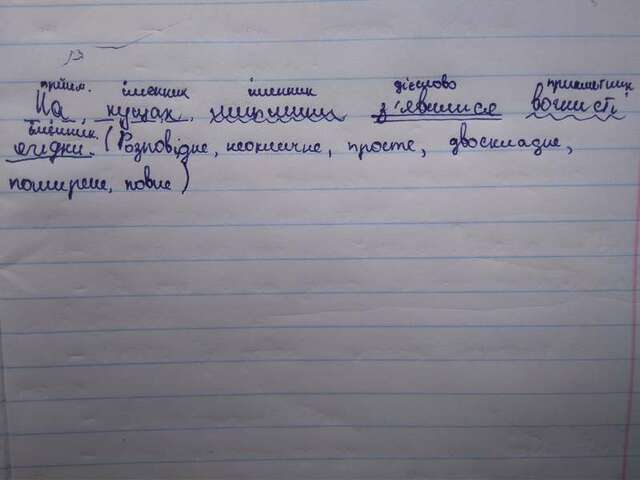 13
прийм. іменник іменник дієслово прикметник
На кущах шипшини з'явилися вогнисті
іменник.
ягідки. (Розповідне, неокличне, просте, двоскладне,
поширене, повне)